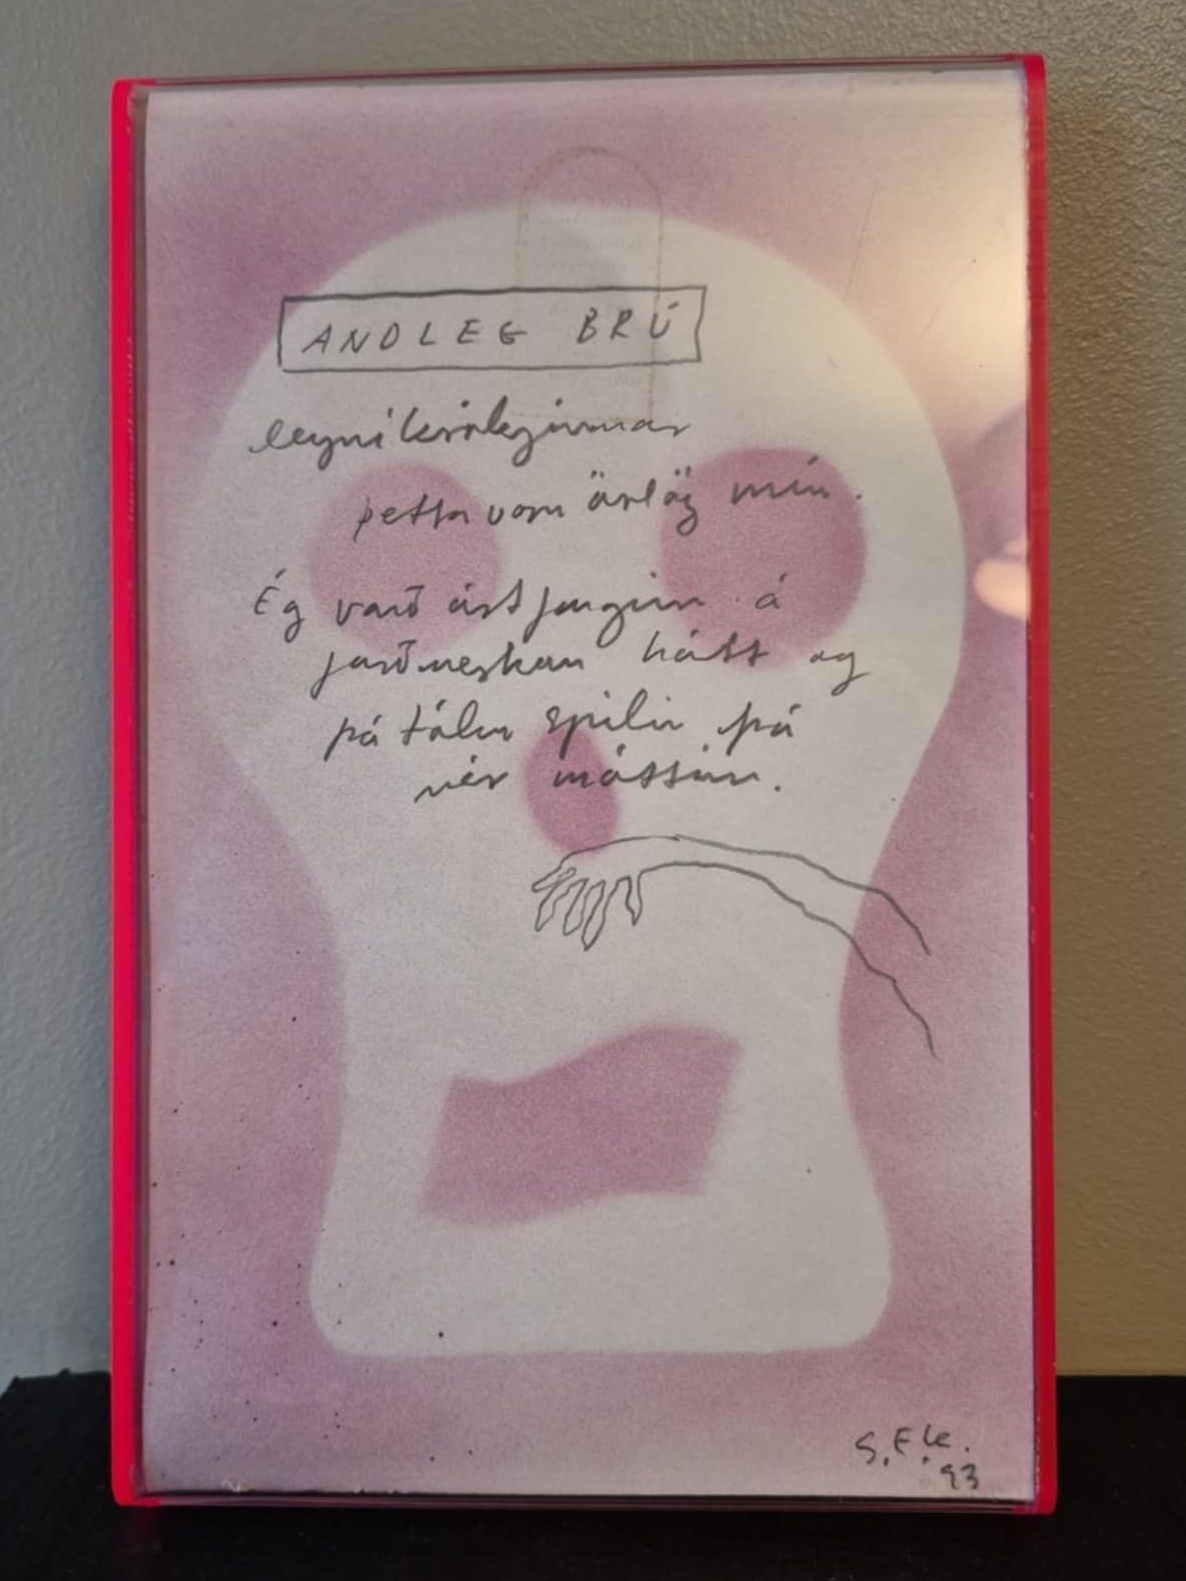 ANDLEG BRÚ
þetta voru örlög mín.
Ég varð ástfanginn á
jarðneskan hátt og
þá tálu spilin þá
mér máttinn.
S.E.
93